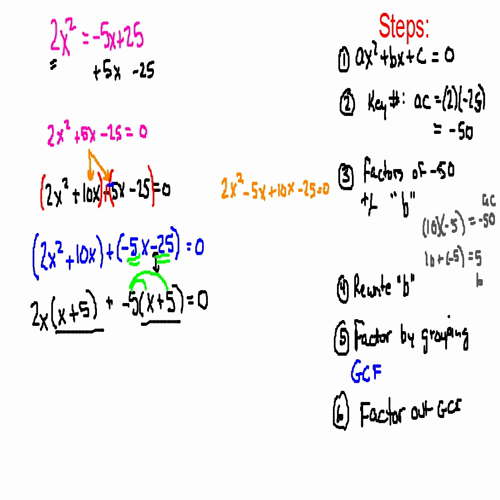 2x² = -5x+25
+5x -25
2x²+5x-25=0
(2x²+10x)+(-5x-25)=0
2x²-5x+10x-25=0
(2x²+10x)+(-5x-25)=0
2x(x+5) + -5(x+5)=0
Steps:
① ax²+bx+c=0
② Key #: ac=(2)(-25)
= -50
③ Factors of -50
+⟌ "b"
ac
(10)(-5)=-50
10+(-5)=5
b
④ Rewrite "b"
⑤ Factor by grouping
GCF
⑥ Factor out GCF